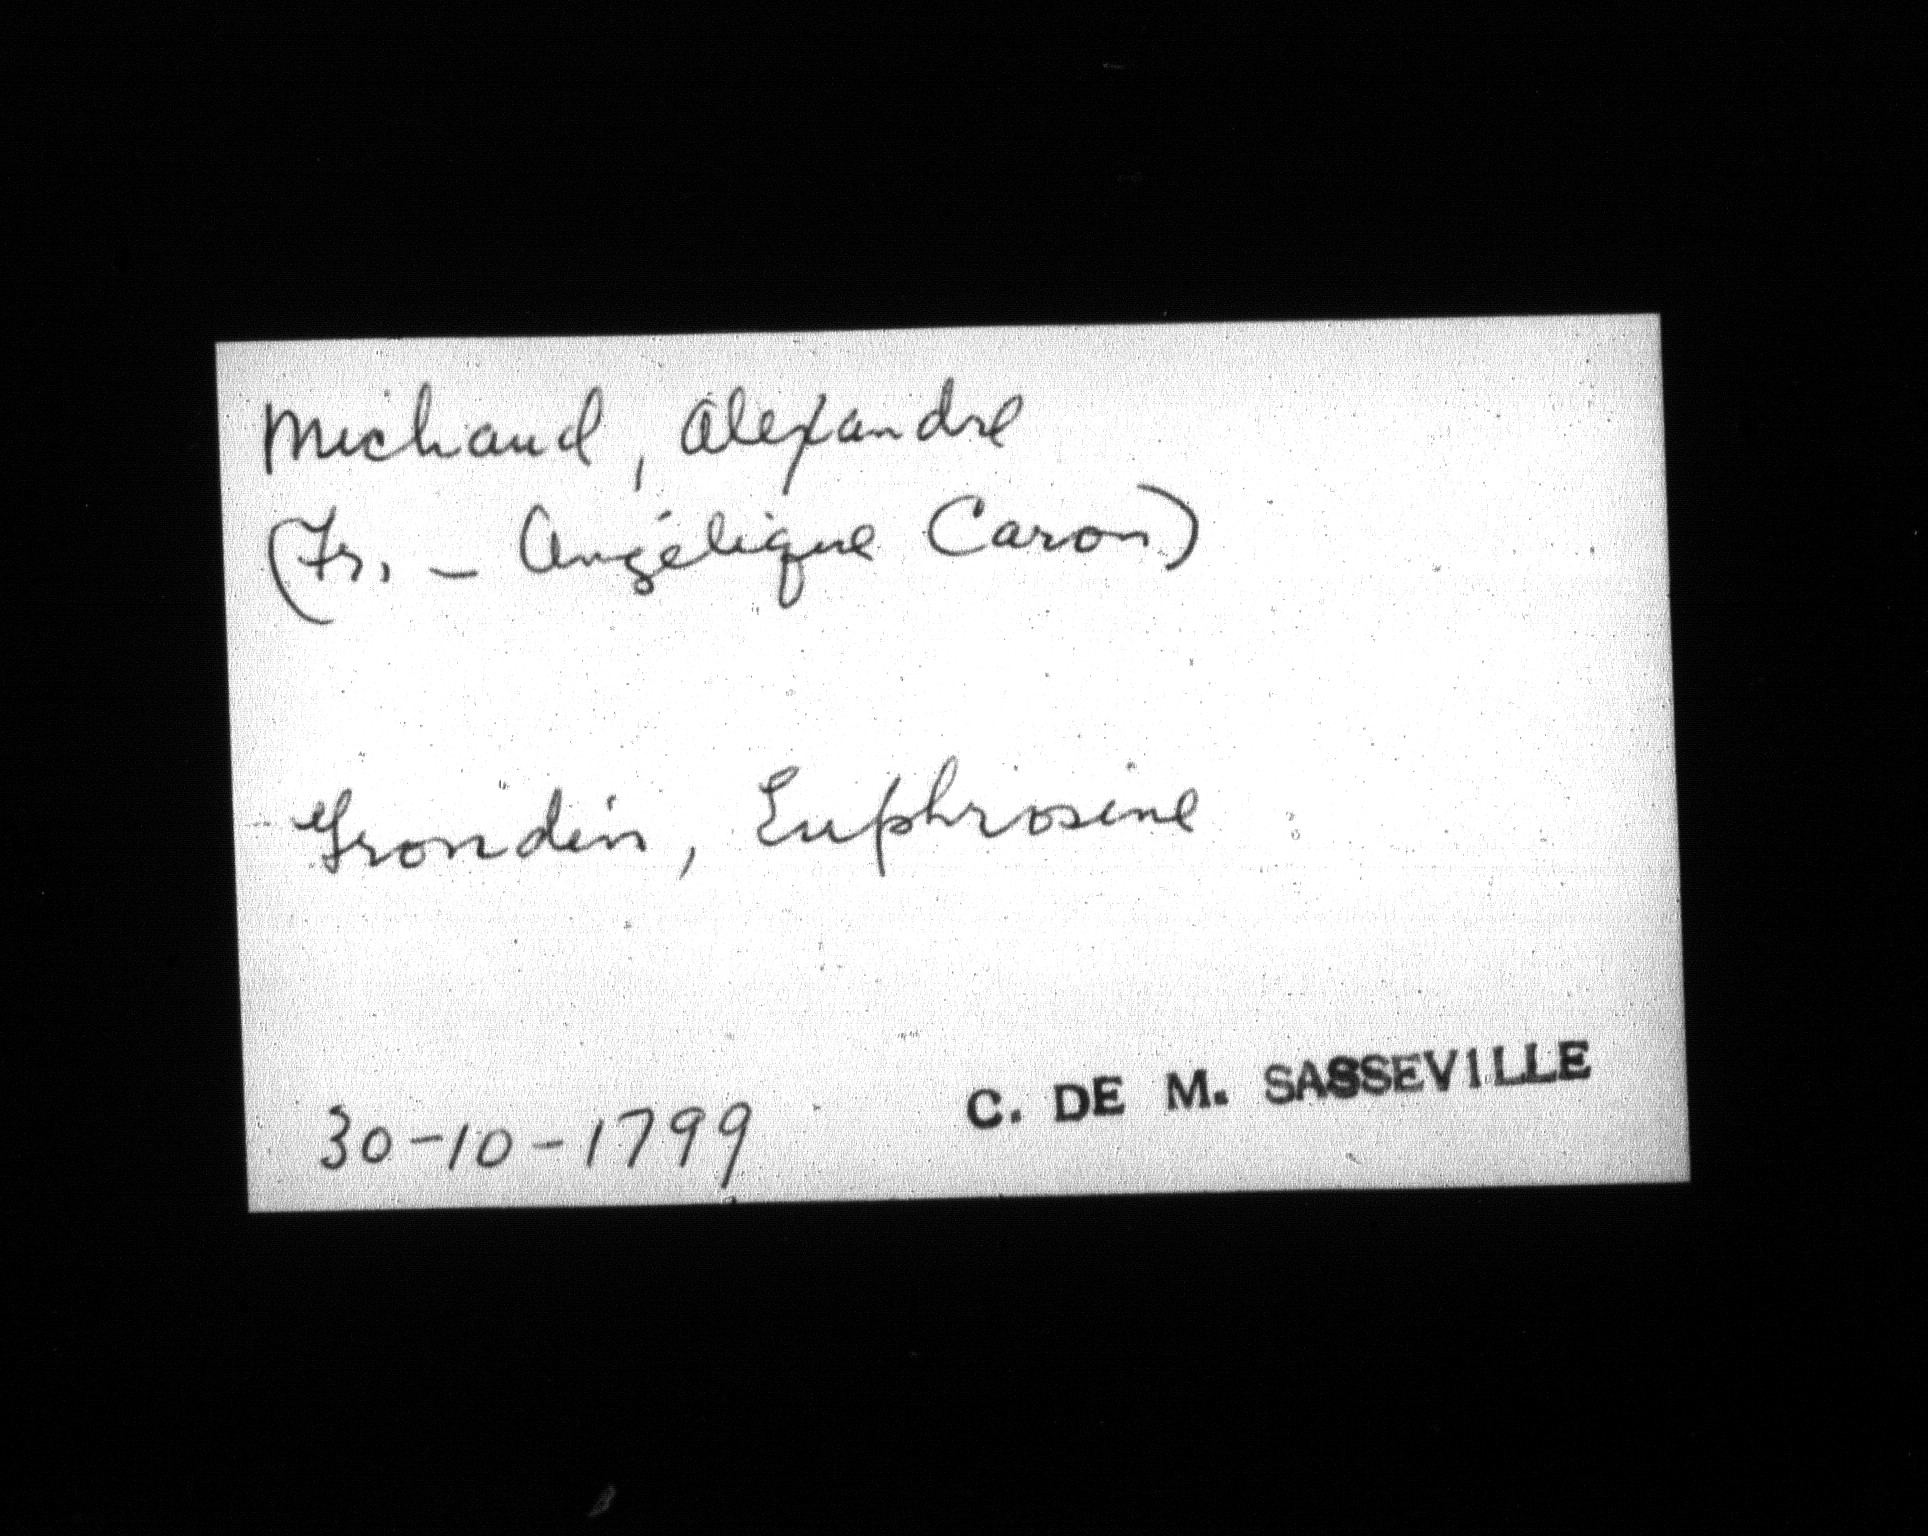 Michaud, Alexandre
(Fr. - Angélique Caron)
Grondin, Euphrosine
30-10-1799
C. DE M. SASSEVILLE